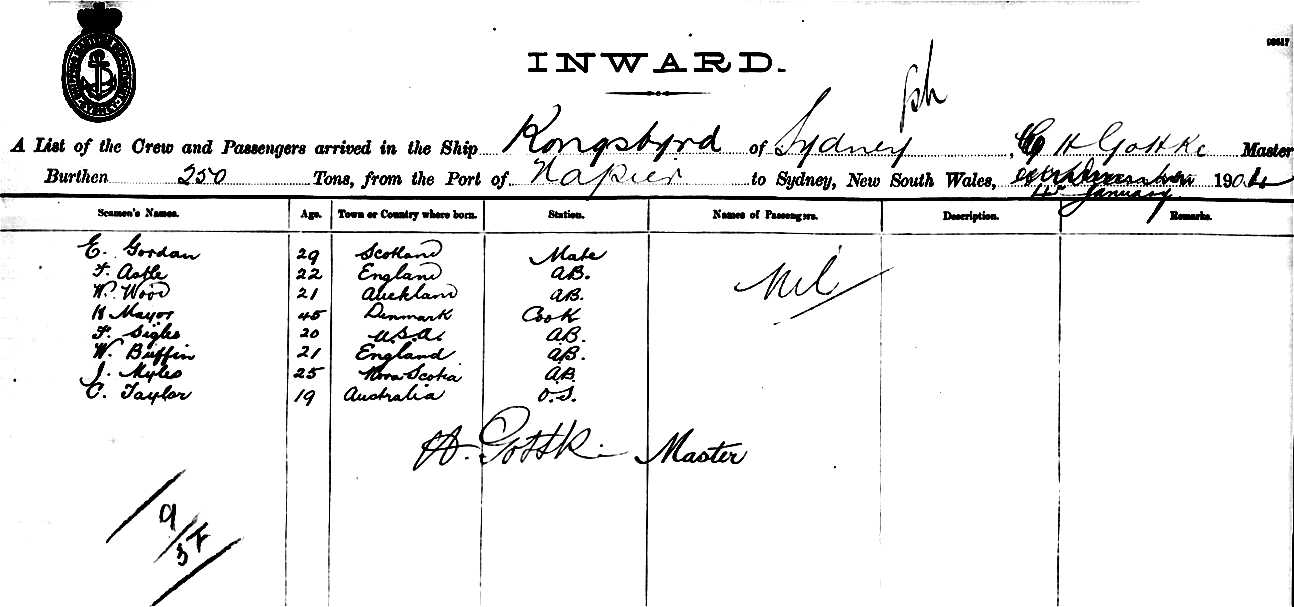 INWARD.
A List of the Crew and Passengers arrived in the Ship Kongsbyrd of Sydney, H Gottke Master
Burthen 250 Tons, from the Port of Napier to Sydney, New South Wales, 4th January 1904
Seamen's Names. Age. Town or Country where born. Station. Names of Passengers. Description. Remarks.
E. Gordan 29 Scotland Mate
F. Astle 22 England A.B. Nil
W. Wood 21 Auckland A.B.
H Mayor 45 Denmark Cook
F. Sigls 20 U.S.A. A.B.
W. Buffin 21 England A.B.
J. Myles 25 Nova Scotia A.B.
C. Taylor 19 Australia O.S.
H. Gottke Master